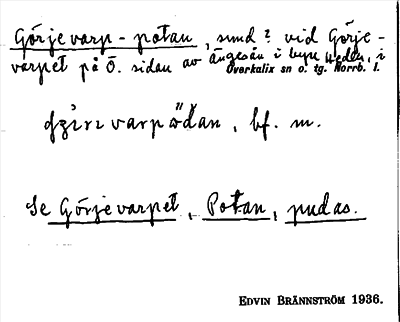 Görjevarp-potan, sund? vid Görje-
varpet på Ö. sidan av Ängesån i byn Heden, i
Överkalix sn o. tg. Norrb. l.
varpödan, bf. m.
Se Görjevarpet, Potan, pudas.
EDVIN BRÄNNSTRÖM 1936.